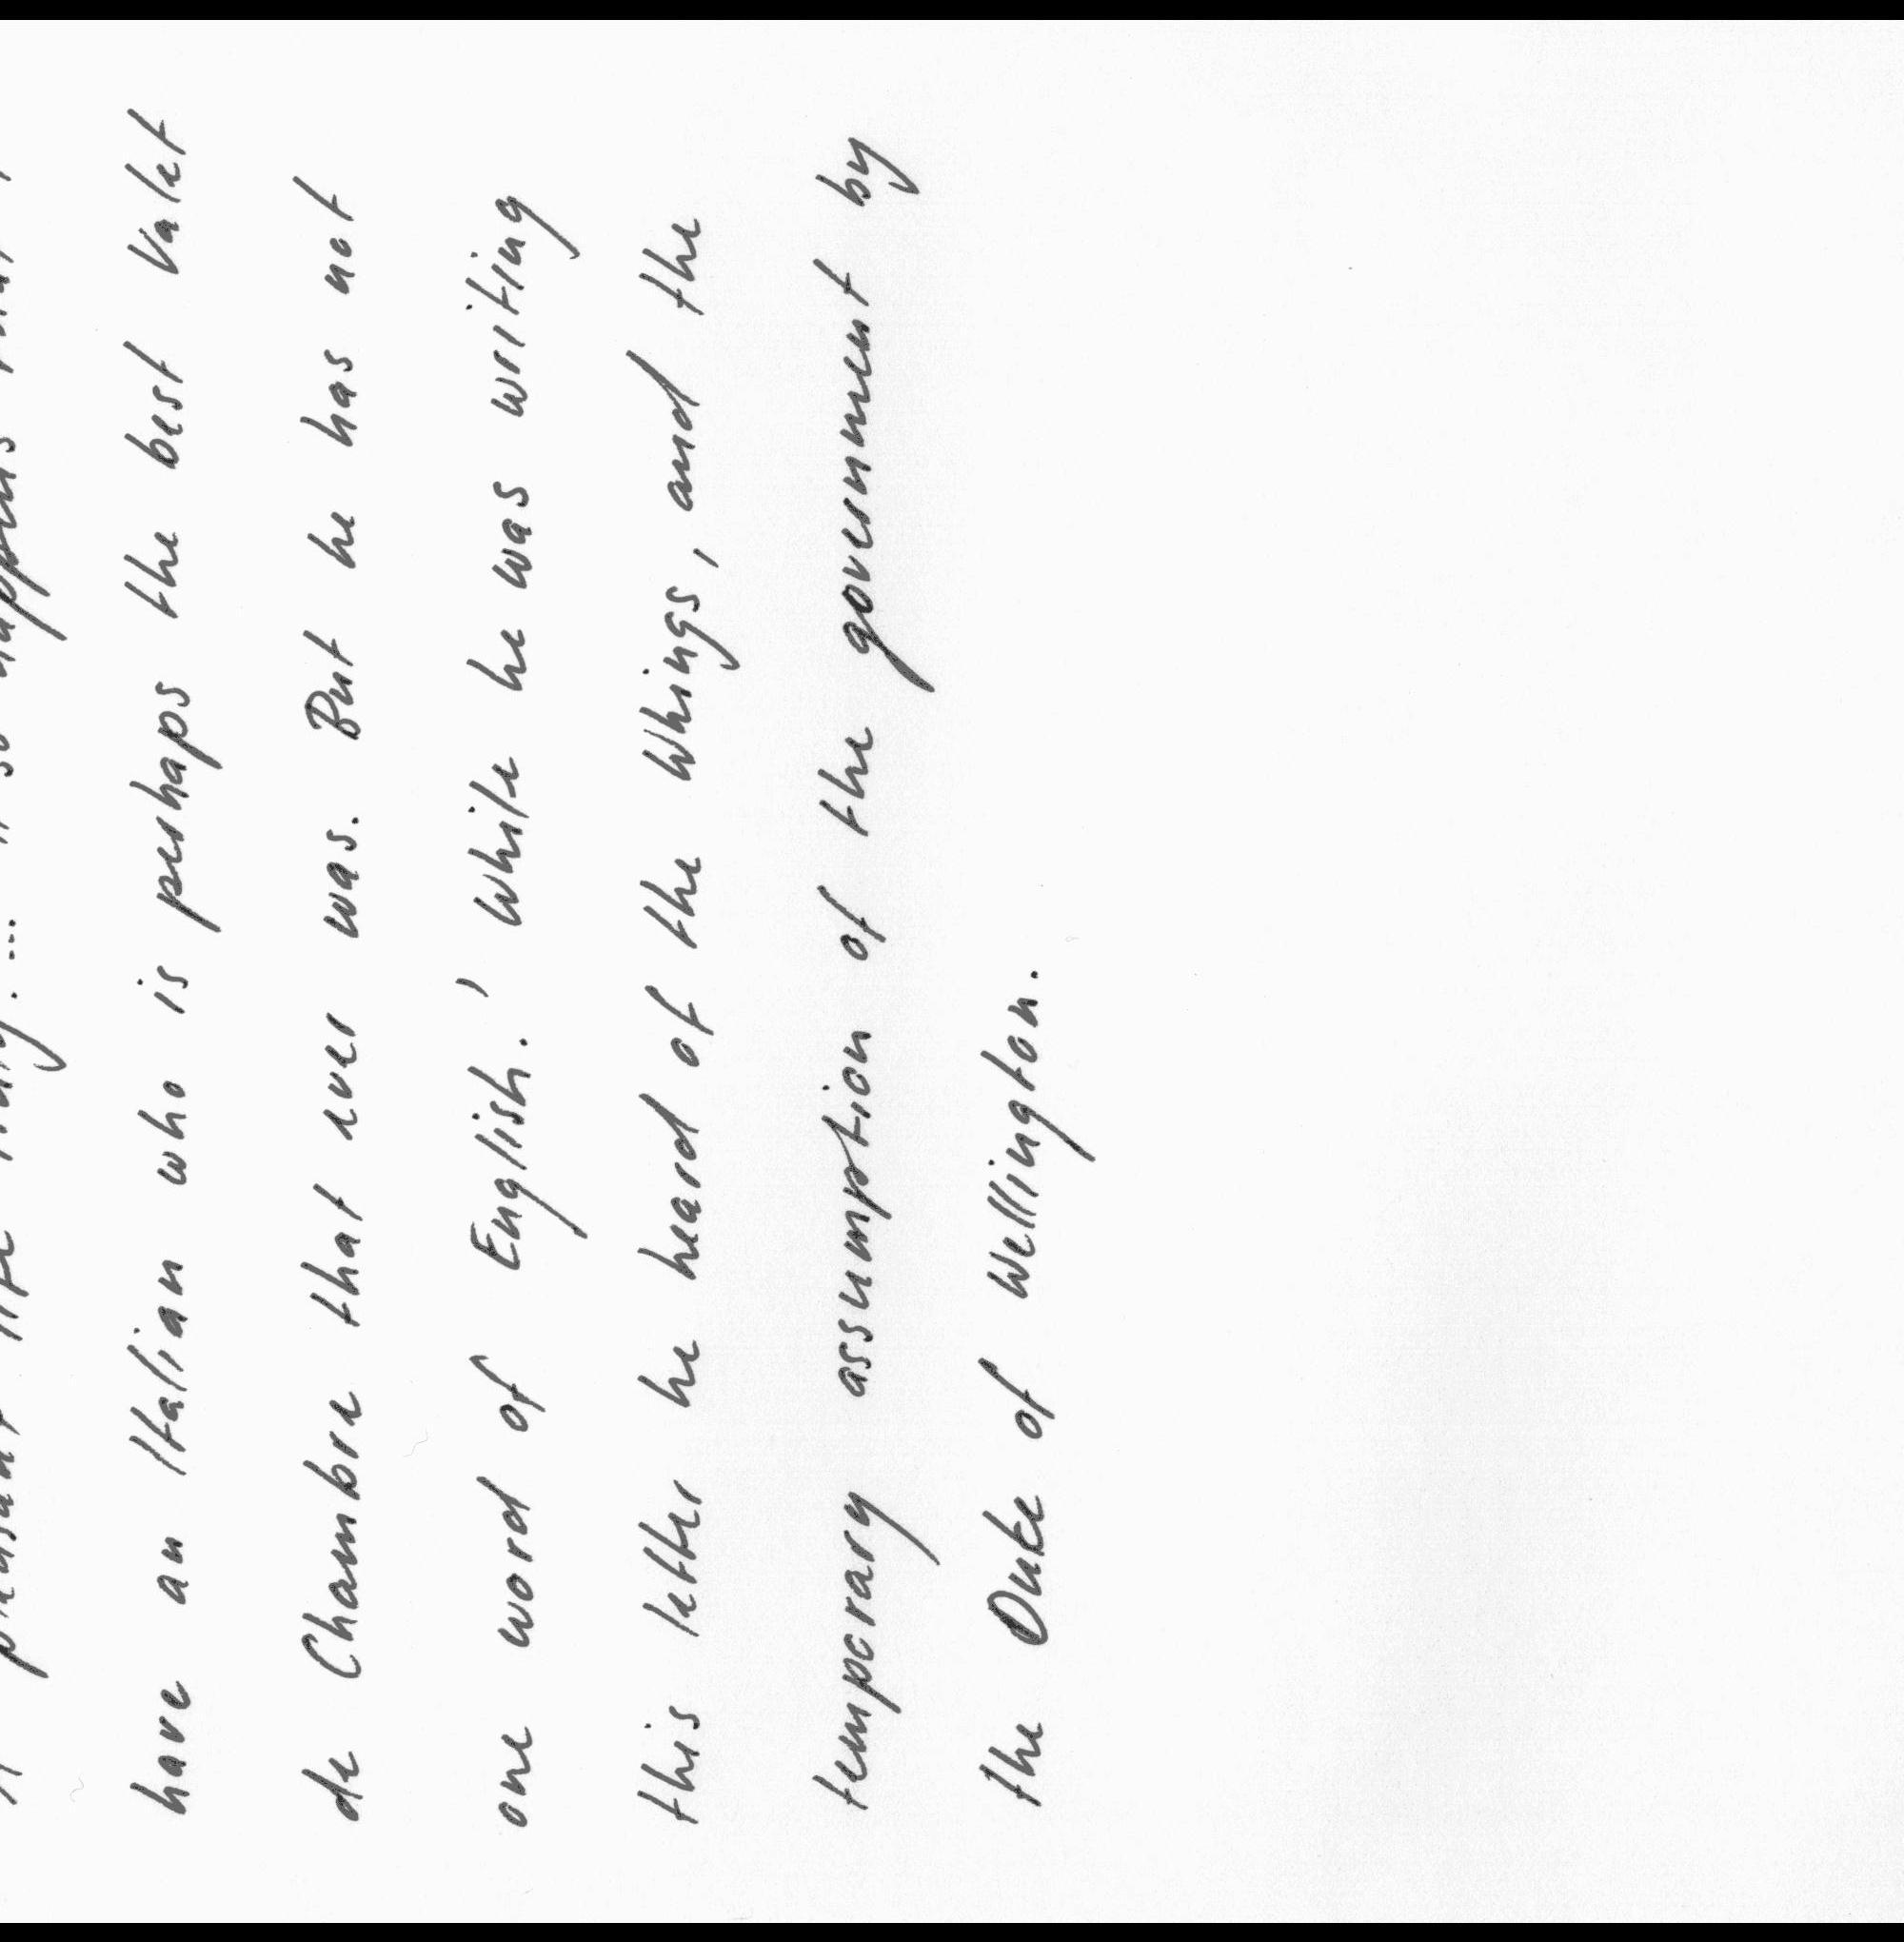 have an Italian who is perhaps the best Valet
de Chambre that ever was. But he has not
one word of English.' While he was writing
this letter he heard of the Whings, and the
temporary assumption of the government by
the Duke of Wellington.